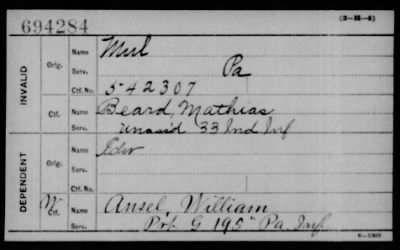 694284
(3-H-4)
INVALID
Orig.
Name
Serv. Pa
Ctf. No. 542307
Ctf.
Name Beard, Mathias
Serv. unas'd 33 Ind Inf
DEPENDENT
Orig.
Name
Serv.
Ctf. No.
W Ctf.
Name Ansel, William
Serv. Pvt. G 195" Pa. Inf.